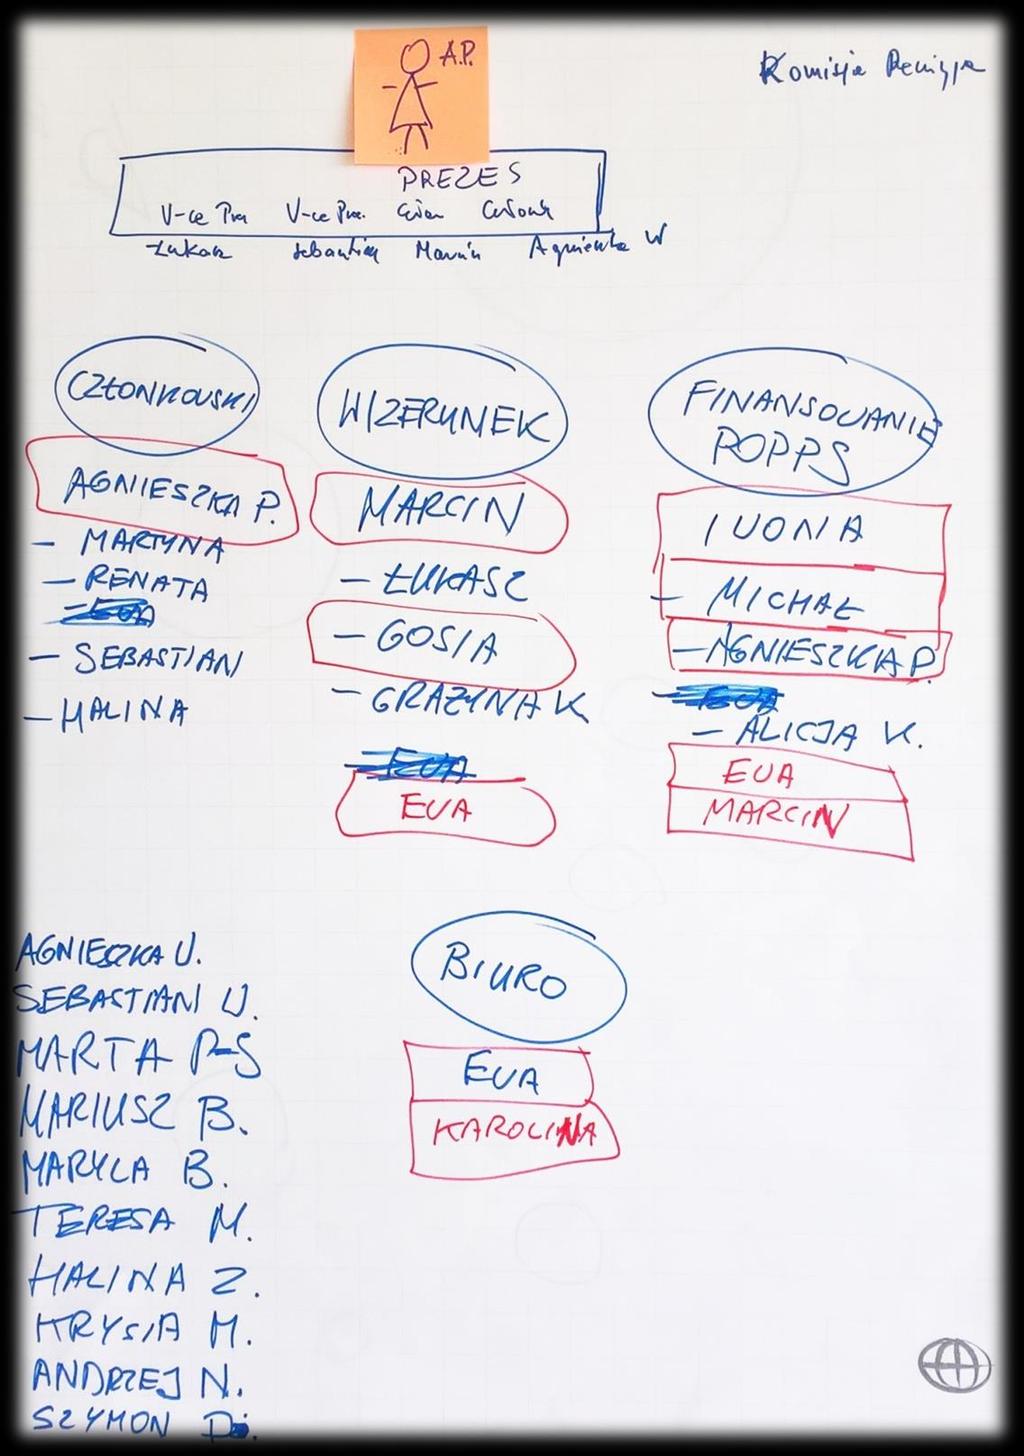 A.P.
Komisja Rewizyjna
PREZES
V-ce Pre V-ce Pre. Członek
Łukasz Sebastian Marcin Agnieszka W
CZŁONKOWSKI
AGNIESZKA P.
- MARTYNA
- RENATA
EWA
- SEBASTIAN
- HALINA
WIZERUNEK
MARCIN
- ŁUKASZ
- GOSIA
- GRAŻYNA K
EWA
EWA
FINANSOWANIE
POPPS
IWONA
- MICHAŁ
- AGNIESZKA P.
EWA
- ALICJA K.
EWA
MARCIN
BIURO
EWA
KAROLINA
AGNIESZKA W.
SEBASTIAN W.
MARTA P-S
MARIUSZ B.
MARYLA B.
TERESA M.
HALINA Z.
KRYSIA M.
ANDRZEJ N.
SZYMON D.